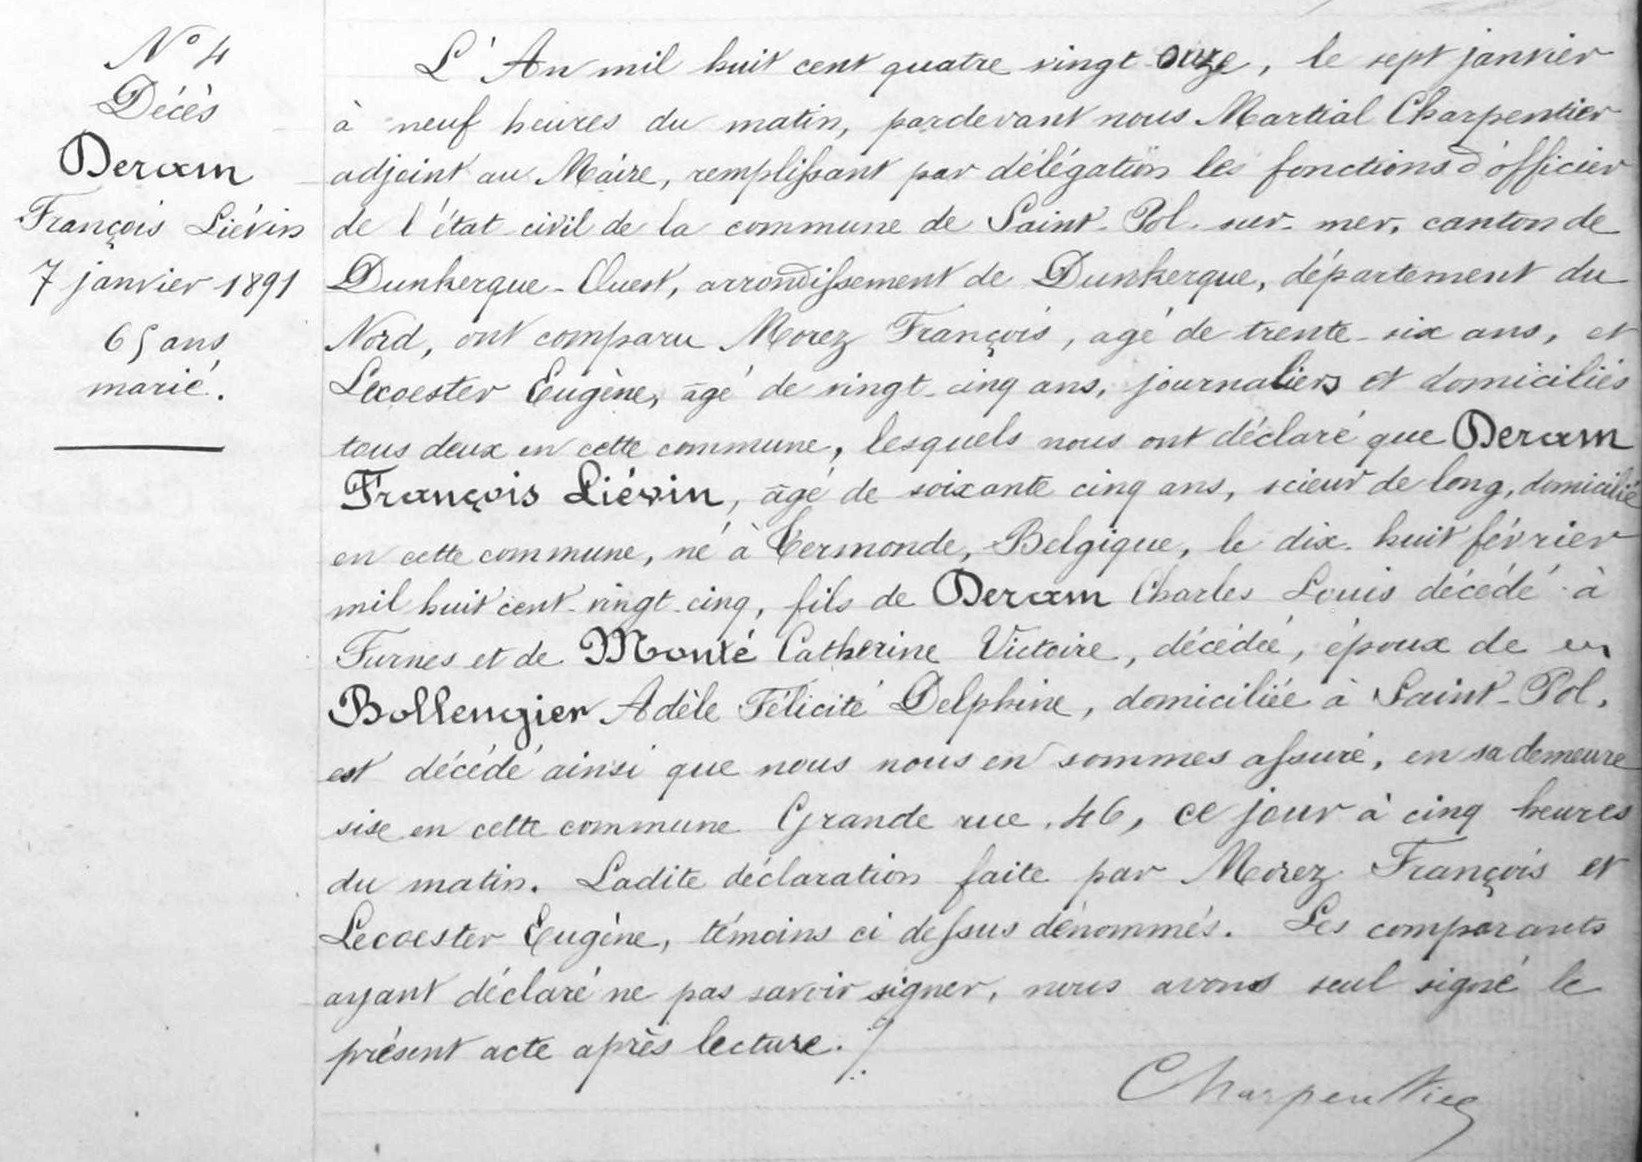 N° 4
Décès
Deram
François Liévin
7 janvier 1891
65 ans
marié.
L'An mil huit cent quatre vingt onze, le sept janvier
à neuf heures du matin, pardevant nous Martial Charpentier
adjoint au Maire, remplissant par délégation les fonctions d'officier
de l'état civil de la commune de Saint-Pol-sur-mer, canton de
Dunkerque-Ouest, arrondissement de Dunkerque, département du
Nord, ont comparu Morez François, agé de trente-six ans, et
Lecoester Eugène, âgé de vingt-cinq ans, journaliers et domiciliés
tous deux en cette commune, lesquels nous ont déclaré que Deram
François Liévin, âgé de soixante cinq ans, scieur de long, domicilié
en cette commune, né à Termonde, Belgique, le dix-huit février
mil huit cent-vingt-cinq, fils de Deram Charles Louis décédé à
Furnes et de Monté Catherine Victoire, décédée, époux de en
Bollengier Adèle Félicité Delphine, domiciliée à Saint-Pol,
est décédé ainsi que nous nous en sommes assuré, en sa demeure
sise en cette commune Grande rue, 46, ce jour à cinq heures
du matin. Ladite déclaration faite par Morez François et
Lecoester Eugène, témoins ci dessus dénommés. Les comparants
ayant déclaré ne pas savoir signer, nous avons seul signé le
présent acte après lecture./.
Charpentier